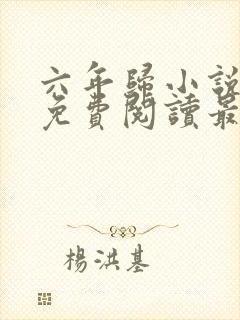 六年歸小說
免費閱讀最
楊洪基